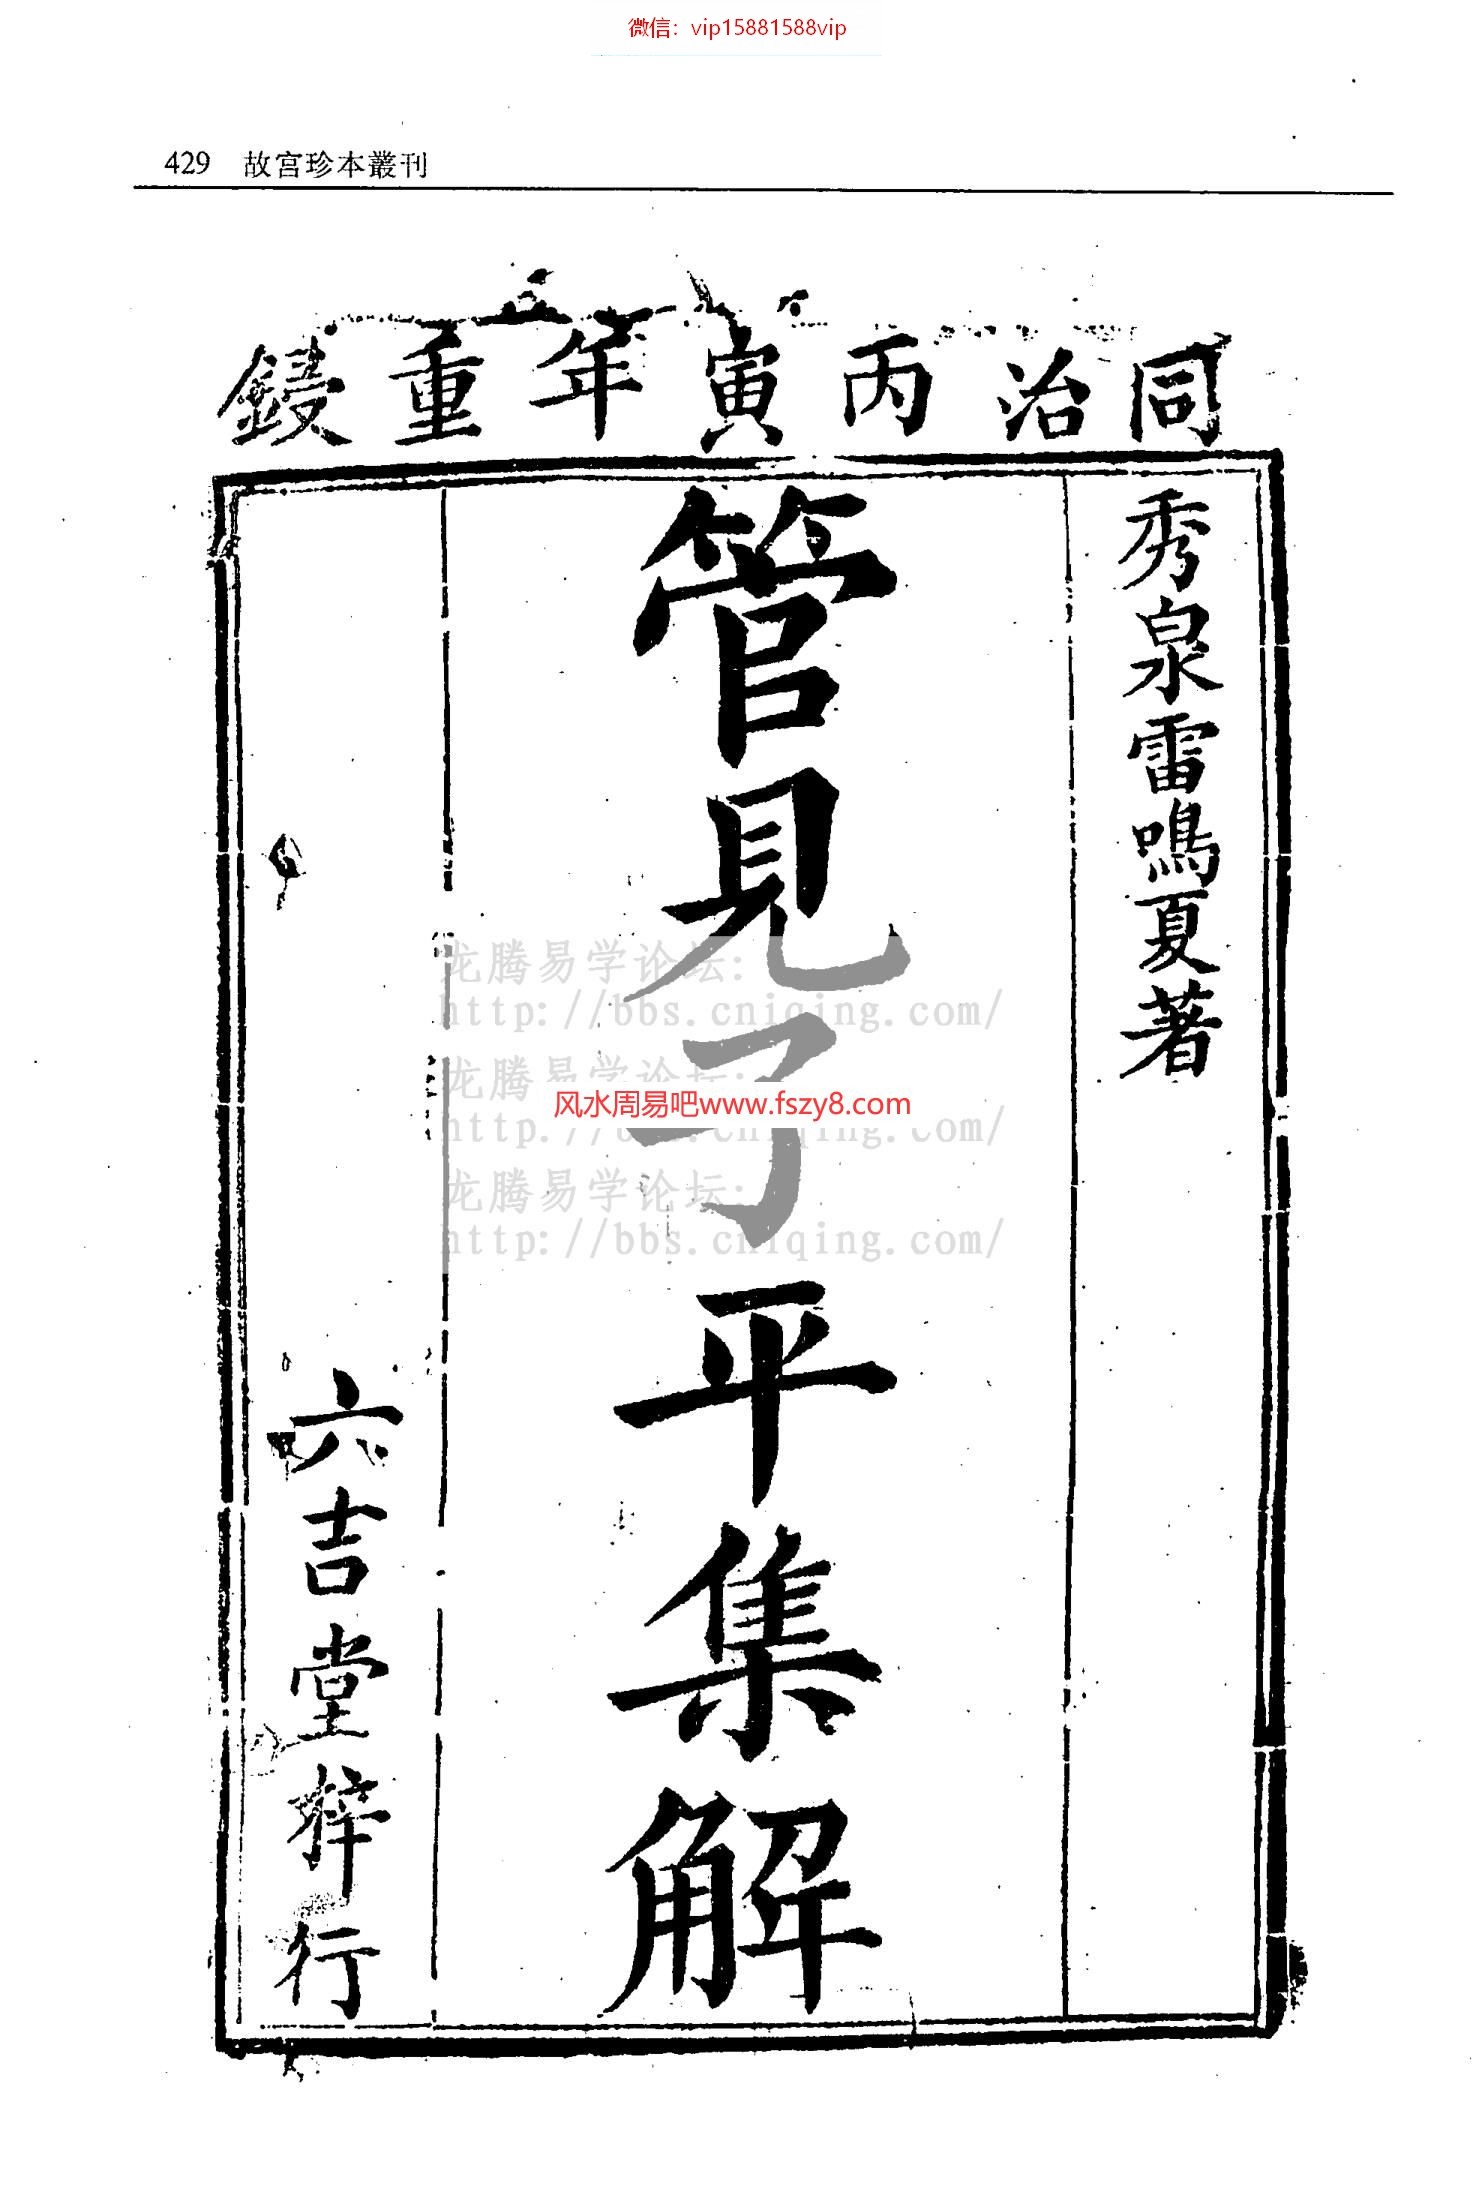 微信：vip15881588vip
429 故宫珍本叢刊
同治丙寅年重鋟
秀泉雷鳴夏著
管見子平集解
六吉堂梓行
龙腾易学论坛:
http://bbs.cniqing.com/
龙腾易学论坛:
风水周易吧www.fszy8.com
http://bbs.cniqing.com/
龙腾易学论坛:
http://bbs.cniqing.com/